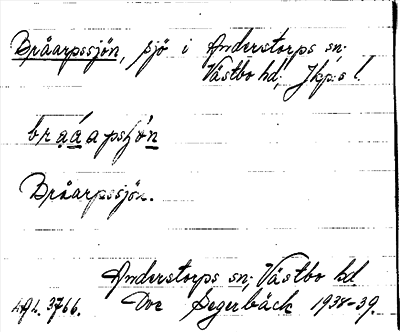 Bråarpssjön, sjö i Anderstorps sn;
Västbo hd; Jkp:s l.
braáapsjön
Bråarpssjön.
Anderstorps sn; Västbo hd
Ove Segerbäck 1938-39.